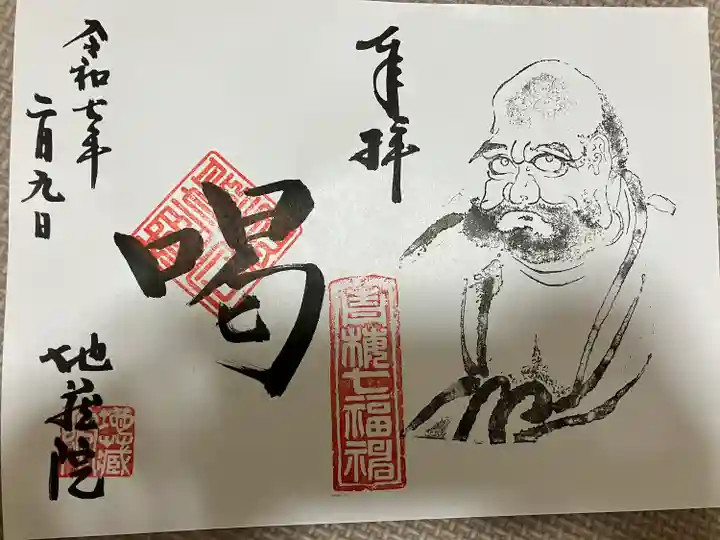 奉拝
喝
吉穂七福神
令和七年
二月九日
地蔵院
地蔵